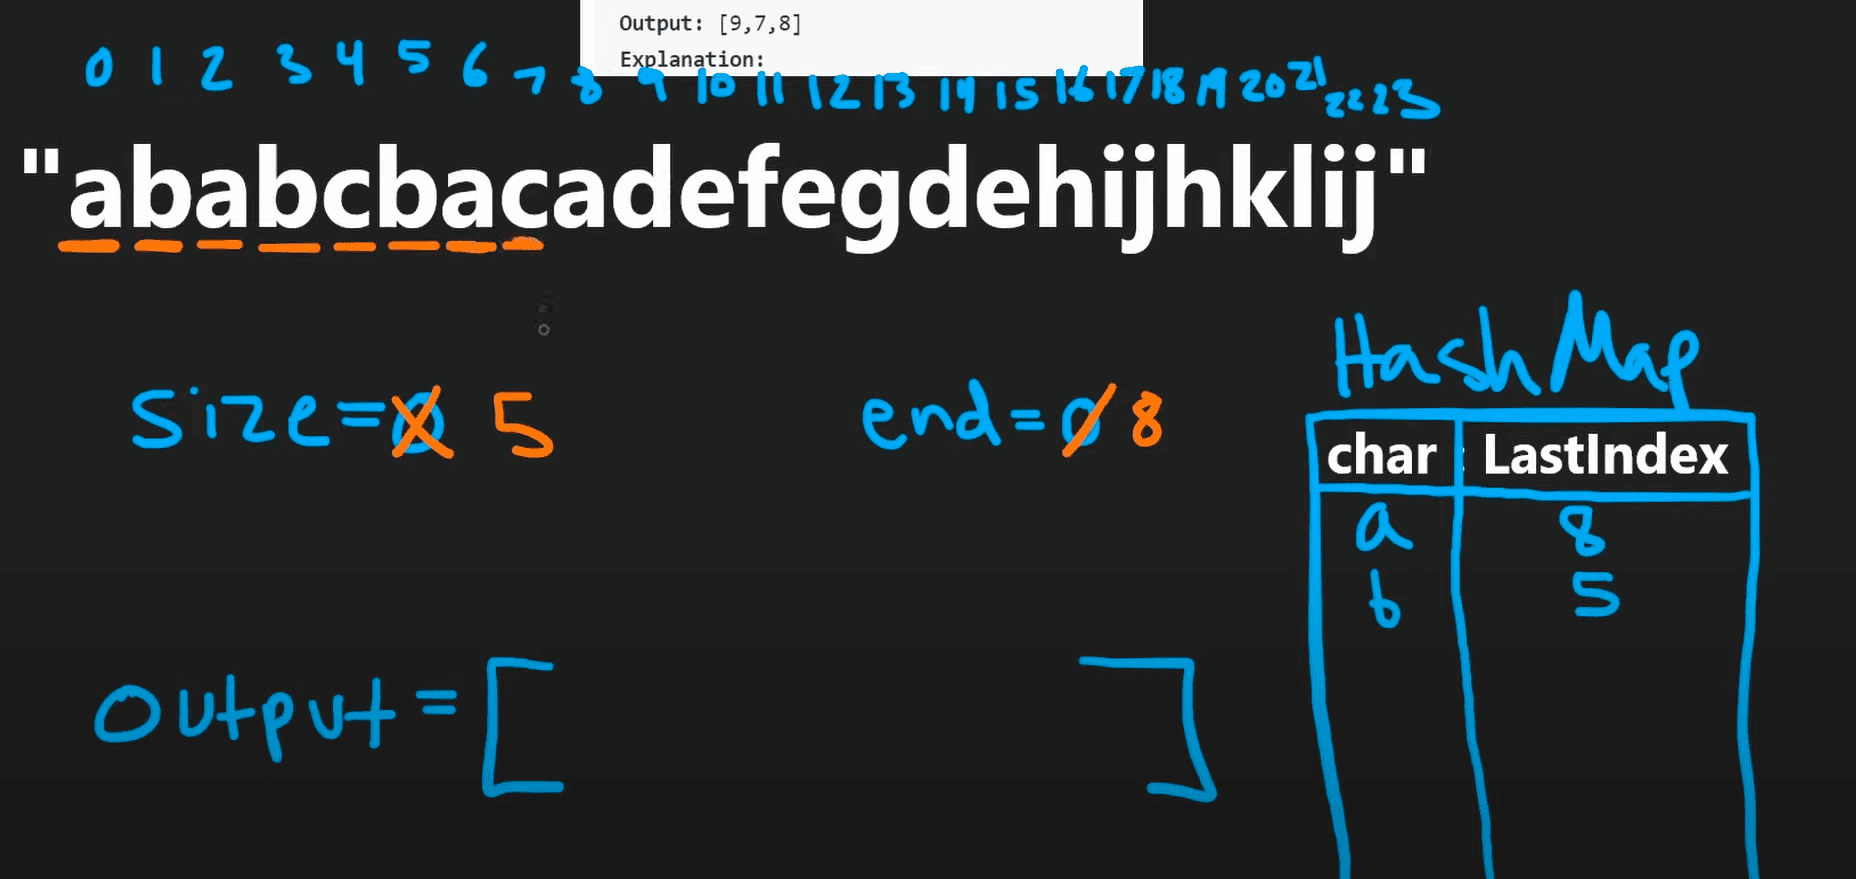 Output: [9,7,8]
Explanation:
0 1 2 3 4 5 6 7 8 9 10 11 12 13 14 15 16 17 18 19 20 21 22 23
"ababcbacadefegdehijhklij"
size=0 5
end=0 8
HashMap
char : LastIndex
a 8
b 5
output = [ ]